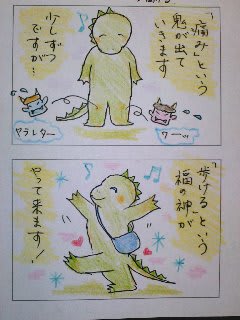 「痛み」という
鬼が出て
いきます
少しずつ
ですが…
ヤラレター
ワーッ
「歩ける」という
福の神が
やって来ます!